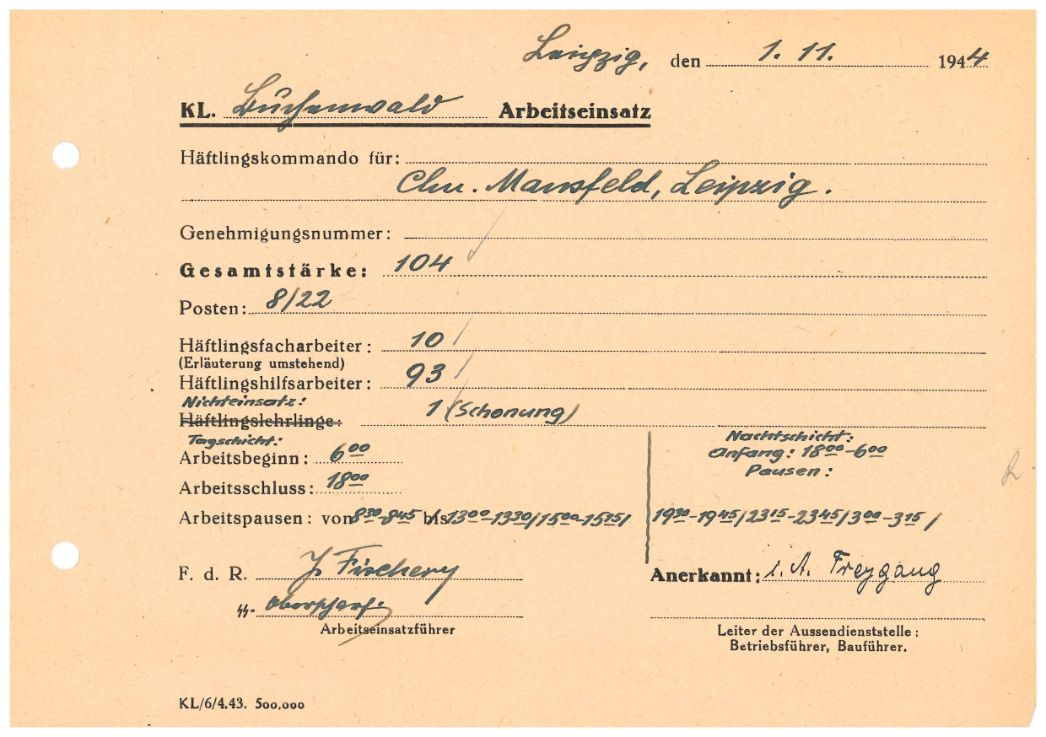 Leipzig, den 1. 11. 1944
KL. Buchenwald Arbeitseinsatz
Häftlingskommando für:
Chn. Mansfeld, Leipzig.
Genehmigungsnummer:
Gesamtstärke: 104
Posten: 8/22
Häftlingsfacharbeiter: 10
(Erläuterung umstehend)
Häftlingshilfsarbeiter: 93
Nichteinsatz:
Häftlingslehrlinge: 1 (Schonung)
Tagschicht:
Arbeitsbeginn: 6⁰⁰
Arbeitsschluss: 18⁰⁰
Nachtschicht:
Anfang: 18⁰⁰-6⁰⁰
Pausen:
Arbeitspausen: von 8³⁰-8⁴⁵ bis 13⁰⁰-13³⁰/15⁰⁰-15¹⁵/ 19³⁰-19⁴⁵/23¹⁵-23⁴⁵/3⁰⁰-3¹⁵/
F. d. R.
SS- Oberscharf.
Arbeitseinsatzführer
Anerkannt: i. A. Freygang
Leiter der Aussendienststelle:
Betriebsführer, Bauführer.
KL/6/4.43. 500,000